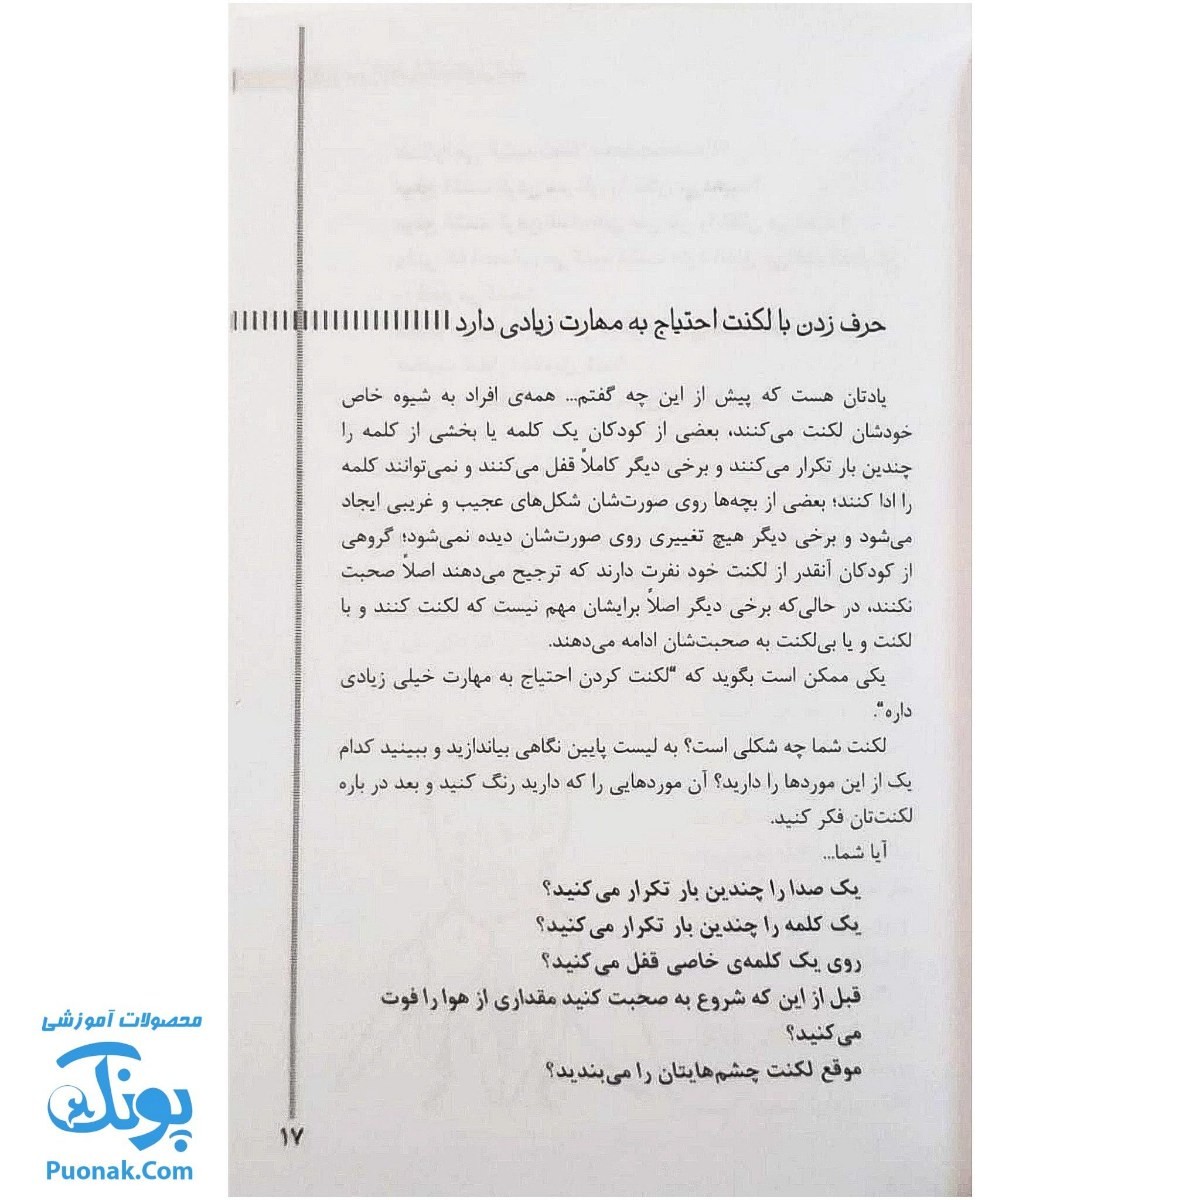 حرف زدن با لکنت احتیاج به مهارت زیادی دارد
یادتان هست که پیش از این چه گفتم... همه‌ی افراد به شیوه خاص
خودشان لکنت می‌کنند، بعضی از کودکان یک کلمه یا بخشی از کلمه را
چندین بار تکرار می‌کنند و برخی دیگر کاملاً قفل می‌کنند و نمی‌توانند کلمه
را ادا کنند؛ بعضی از بچه‌ها روی صورت‌شان شکل‌های عجیب و غریبی ایجاد
می‌شود و برخی دیگر هیچ تغییری روی صورت‌شان دیده نمی‌شود؛ گروهی
از کودکان آنقدر از لکنت خود نفرت دارند که ترجیح می‌دهند اصلاً صحبت
نکنند، در حالی‌که برخی دیگر اصلاً برایشان مهم نیست که لکنت کنند و با
لکنت و یا بی‌لکنت به صحبت‌شان ادامه می‌دهند.
یکی ممکن است بگوید که "لکنت کردن احتیاج به مهارت خیلی زیادی
داره".
لکنت شما چه شکلی است؟ به لیست پایین نگاهی بیاندازید و ببینید کدام
یک از این موردها را دارید؟ آن موردهایی را که دارید رنگ کنید و بعد در باره
لکنت‌تان فکر کنید.
آیا شما...
یک صدا را چندین بار تکرار می‌کنید؟
یک کلمه را چندین بار تکرار می‌کنید؟
روی یک کلمه‌ی خاصی قفل می‌کنید؟
قبل از این که شروع به صحبت کنید مقداری از هوا را فوت
می‌کنید؟
موقع لکنت چشم‌هایتان را می‌بندید؟
۱۷
محصولات آموزشی
پونک
Puonak.Com